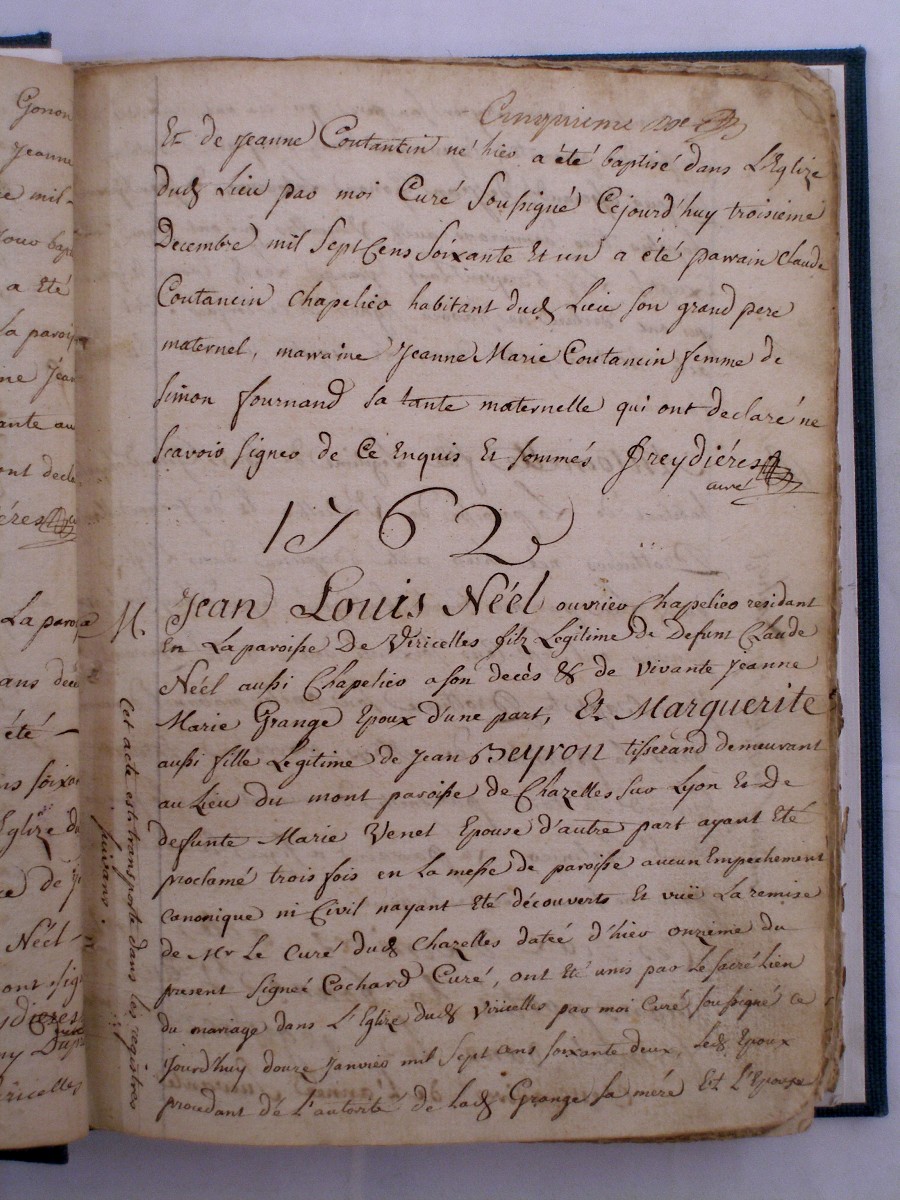 Gonon
Jeanne
ce mil-
Jour bap
a été
La parois
ne Jean
ante au
ont decla
La paroisse
ans déc
été
ns soixa
Eglize du
ce de
Néél
ont sig
ricelles
Cinquieme
Et de Jeanne Coutancin né hier a été baptisé dans L'Eglize
dud Lieu par moi Curé Soussigné Cejourd'huy troisieme
Decembre mil Sept Cens Soixante Et un a été parrain Claude
Coutancin chapelier habitant dud Lieu son grand pere
maternel, marraine Jeanne Marie Coutancin femme de
Simon fournand sa tante maternelle qui ont declaré ne
scavoir signer de Ce Enquis Et sommés freydiéres
curé
1762
M. Jean Louis Néél ouvrier Chapelier residant
En La paroisse De Viricelles filz Legitime de Defunt Claude
Néél aussi Chapelier a son decès & de vivante Jeanne
Marie Grange Epoux d'une part, Et Marguerite
aussi fille Legitime de Jean Beyron tisserand demeurant
au Lieu du mont paroisse de Chazelles sur Lyon Et de
defunte Marie Venet Epouse d'autre part ayant Eté
proclamé trois fois en La messe de paroisse aucun Empechement
canonique ni Civil nayant Eté découverts Et vuë La remise
de Mr Le Curé dud Chazelles datée d'hier onzieme du
present signée Cochard Curé, ont Eté unis par Le sacré Lien
du mariage dans L'Eglize dud Viricelles par moi Curé soussigné ce
jourd'huy douze Janvier mil Sept Cens soixante deux, led Epoux
procedant de L'autorité de lad Grange sa mére Et L'Epouse
Cet acte est transporté dans les registres
suivans